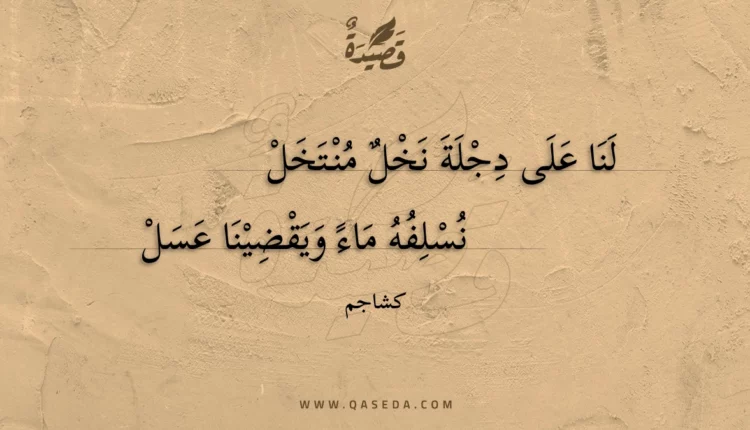 قَصِيْدَةٌ
لَنَا عَلَى دِجْلَةَ نَخْلٌ مُنْتَخَلْ
نُسْلِفُهُ مَاءً وَيَقْضِيْنَا عَسَلْ
كشاجم
WWW.QASEDA.COM